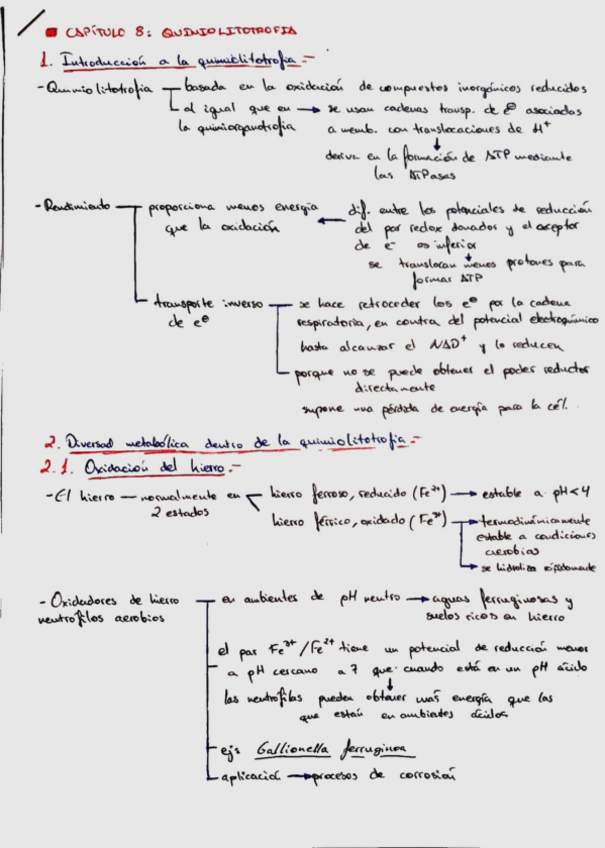 CAPÍTULO 8: QUIMIOLITOTROFIA
1. Introducción a la quimiolitotrofia.-
- Quimiolitotrofia — basada en la oxidación de compuestos inorgánicos reducidos
al igual que en → se usan cadenas transp. de e⊖ asociadas
la quimiorganotrofia a memb. con translocaciones de H+
↓
deriva en la formación de ATP mediante
las ATPasas
- Rendimiento — proporciona menos energía ← dif. entre los potenciales de reducción
que la oxidación del par redox donador y el aceptor
de e- es inferior
↓
se translocan menos protones para
formar ATP
transporte inverso — se hace retroceder los e⊖ por la cadena
de e⊖ respiratoria, en contra del potencial electroquímico
hasta alcanzar el NAD+ y lo reducen
porque no se puede obtener el poder reductor
directamente
supone una pérdida de energía para la cél.
2. Diversad metabólica dentro de la quimiolitotrofia.-
2.1. Oxidación del hierro.-
- El hierro — normalmente en hierro ferroso, reducido (Fe2+) → estable a pH<4
2 estados hierro férrico, oxidado (Fe3+) → termodinámicamente
estable a condiciones
aerobias
→ se hidroliza rápidamente
- Oxidadores de hierro — en ambientes de pH neutro → aguas ferruginosas y
neutrófilos aerobios suelos ricos en hierro
el par Fe3+/Fe2+ tiene un potencial de reducción menor
a pH cercano a 7 que cuando está en un pH ácido
↓
las neutrófilas pueden obtener más energía que las
que están en ambientes ácidos
ejs Gallionella ferruginea
aplicación → procesos de corrosión